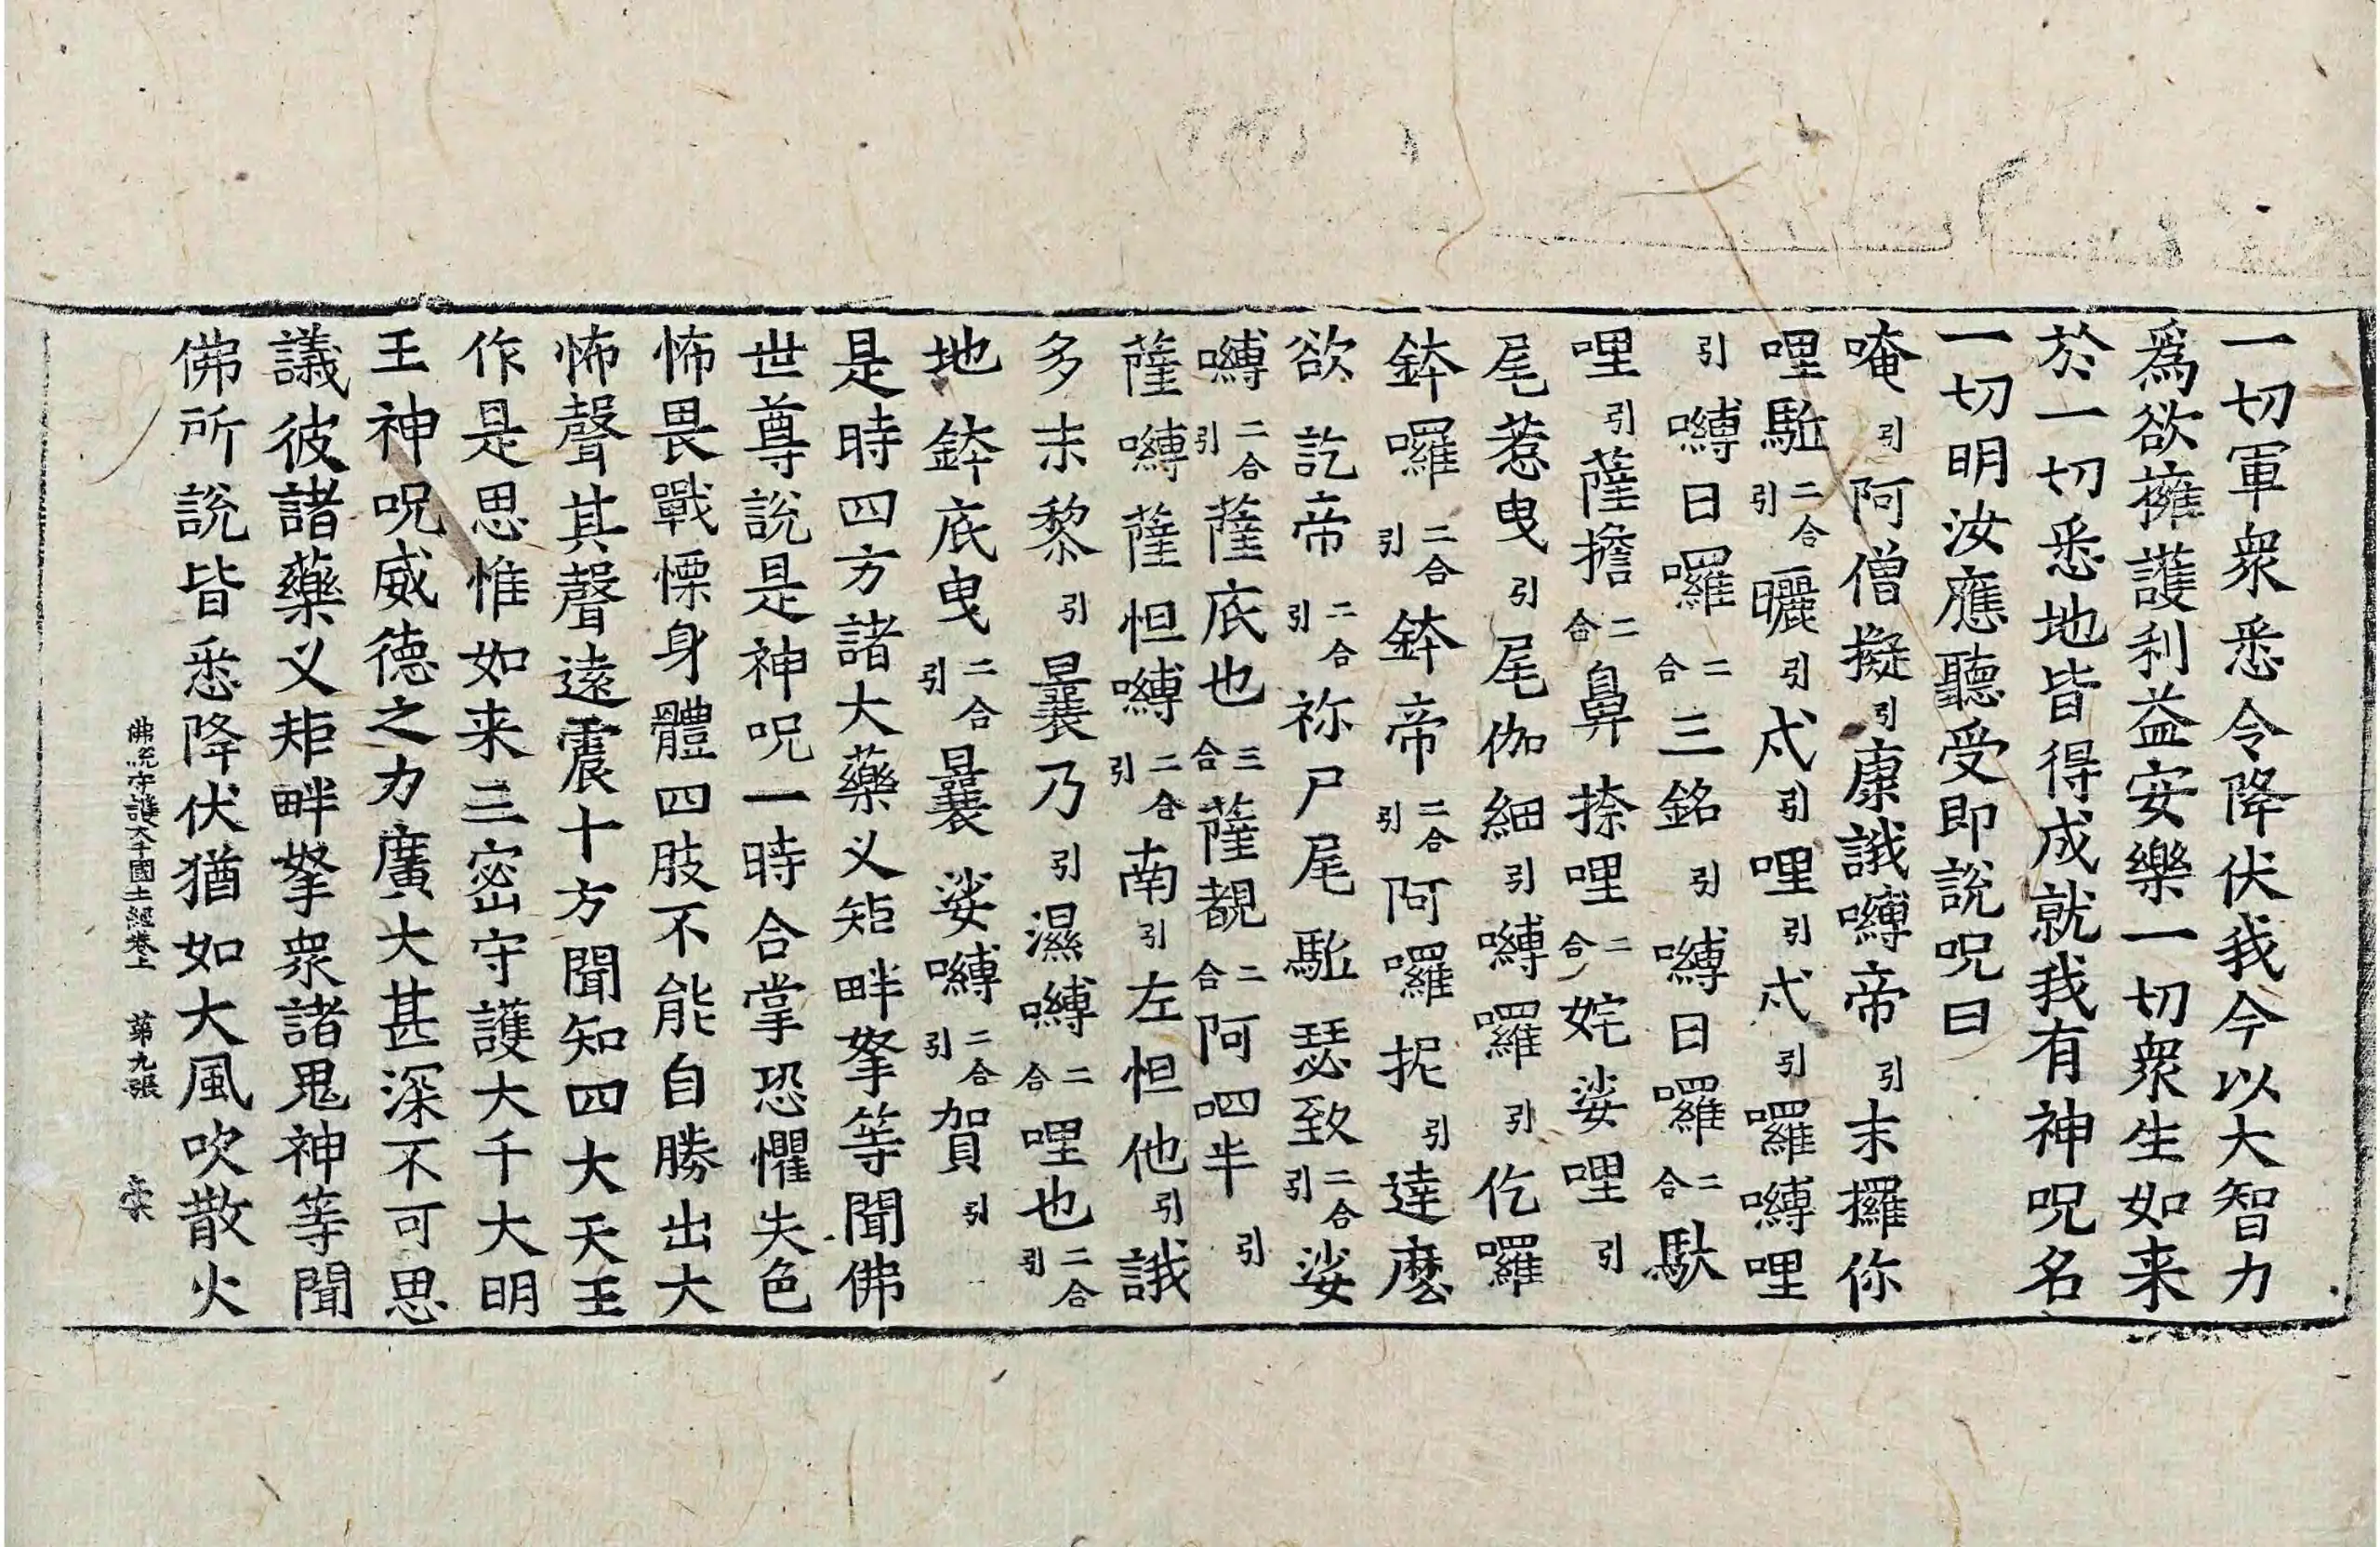 一切軍衆悉令降伏我今以大智力
爲欲擁護利益安樂一切衆生如来
於一切悉地皆得成就我有神呪名
一切明汝應聽受即說呪曰
唵引阿僧擬引康誐嚩帝引末攞你
哩馳二合引曬引忒引哩引忒引囉嚩哩
引嚩日囉二合三銘引嚩日囉二合馱
哩引薩擔二合鼻捺哩二合姹娑哩引
尾惹曳引尾伽細引嚩囉引仡囉
鉢囉二合引鉢帝二合引阿囉抳引達麽
欲訖帝二合引祢尸尾馳瑟致二合引娑
嚩二合引薩底也三合薩覩二合阿呬半引
薩嚩薩怛嚩二合引南引左怛他引誐
多末黎引曩乃引濕嚩二合哩也二合引
地鉢底曳二合引曩娑嚩二合引賀引
是時四方諸大藥义矩畔拏等聞佛
世尊說是神呪一時合掌恐懼失色
怖畏戰慄身體四肢不能自勝出大
怖聲其聲遠震十方聞知四大天王
作是思惟如来三密守護大千大明
王神呪威德之力廣大甚深不可思
議彼諸藥义矩畔拏衆諸鬼神等聞
佛所說皆悉降伏猶如大風吹散火
佛說守護大千國土經卷上 第九張